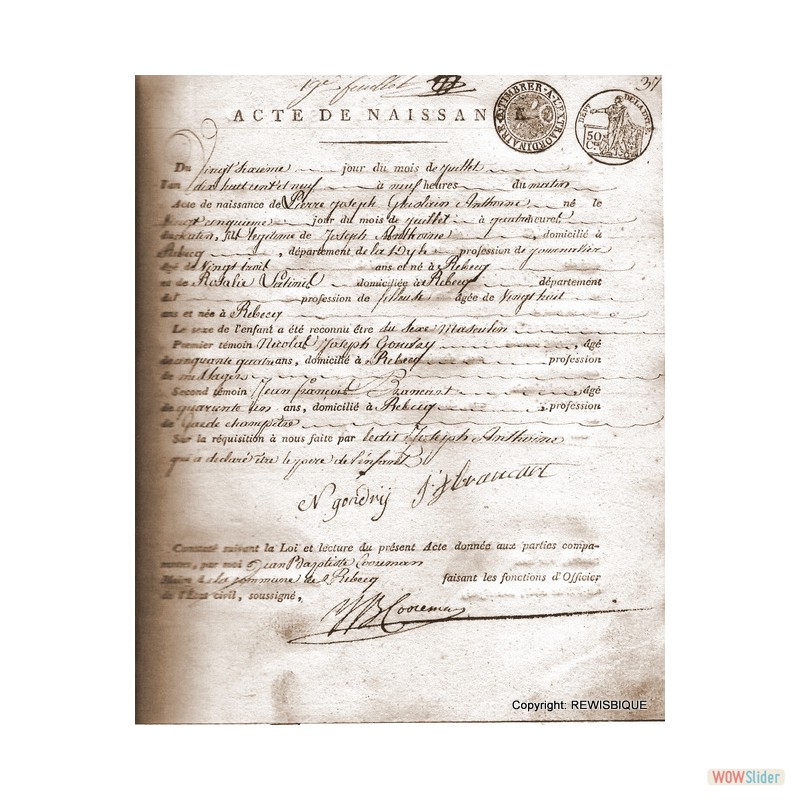 19e feuillet
37
ACTE DE NAISSAN
TIMBRER A L'EXTRAORDINAIRE
DEPT DE LA DYLE
50 Cs
Du vingt sixieme jour du mois de juillet
l'an dix huit cent et neuf à neuf heures du matin
Acte de naissance de Pierre Joseph Ghislain Anthoine né le
vingt cinquieme jour du mois de juillet à quatre heures
du matin, fils legitime de Joseph Anthoine, domicilié à
Rebecq, département de la Dyle profession de journalier
âgé de vingt trois ans et né à Rebecq
et de Rosalie domiciliée à Rebecq département
profession de fileuse âgée de vingt huit
ans et née à Rebecq
Le sexe de l'enfant a été reconnu être du sexe Masculin
Premier témoin Nicolas Joseph, âgé
de cinquante quatre ans, domicilié à Rebecq profession
de messager
Second témoin Jean françois Brancart, âgé
de quarante un ans, domicilié à Rebecq, profession
de Garde champêtre
Sur la réquisition à nous faite par ledit Joseph Anthoine
qui a declaré être le pere de l'enfant
N gondrij J f brancart
Constaté suivant la Loi et lecture du présent Acte donnée aux parties compa-
rantes, par moi Jean Baptiste Cooreman
Maire de la commune de Rebecq faisant les fonctions d'Officier
de l'État civil, soussigné,
JB Cooreman
Copyright: REWISBIQUE
WOWSlider